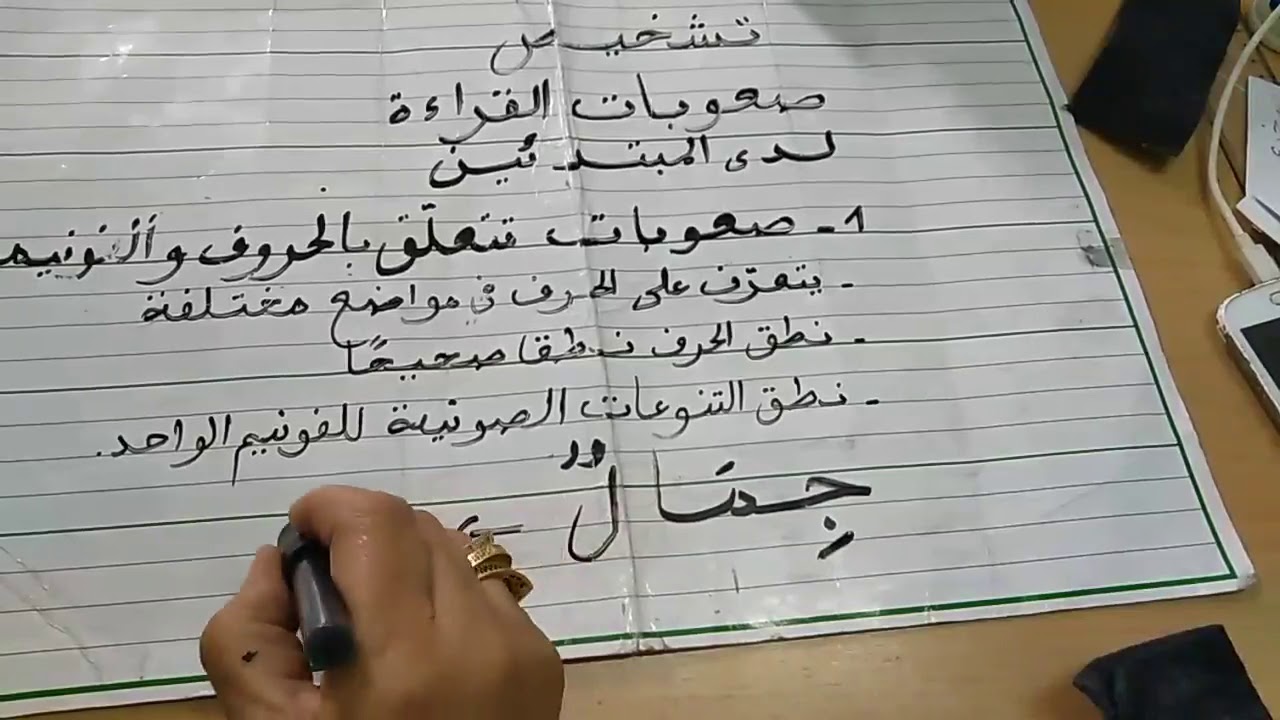 تشخيص
صعوبات القراءة
لدى المبتدئين
1- صعوبات تتعلّق بالحروف والفونيم
- يتعرّف على الحرف في مواضع مختلفة
- نطق الحرف نطقا صحيحًا
- نطق التنوعات الصوتية للفونيم الواحد.